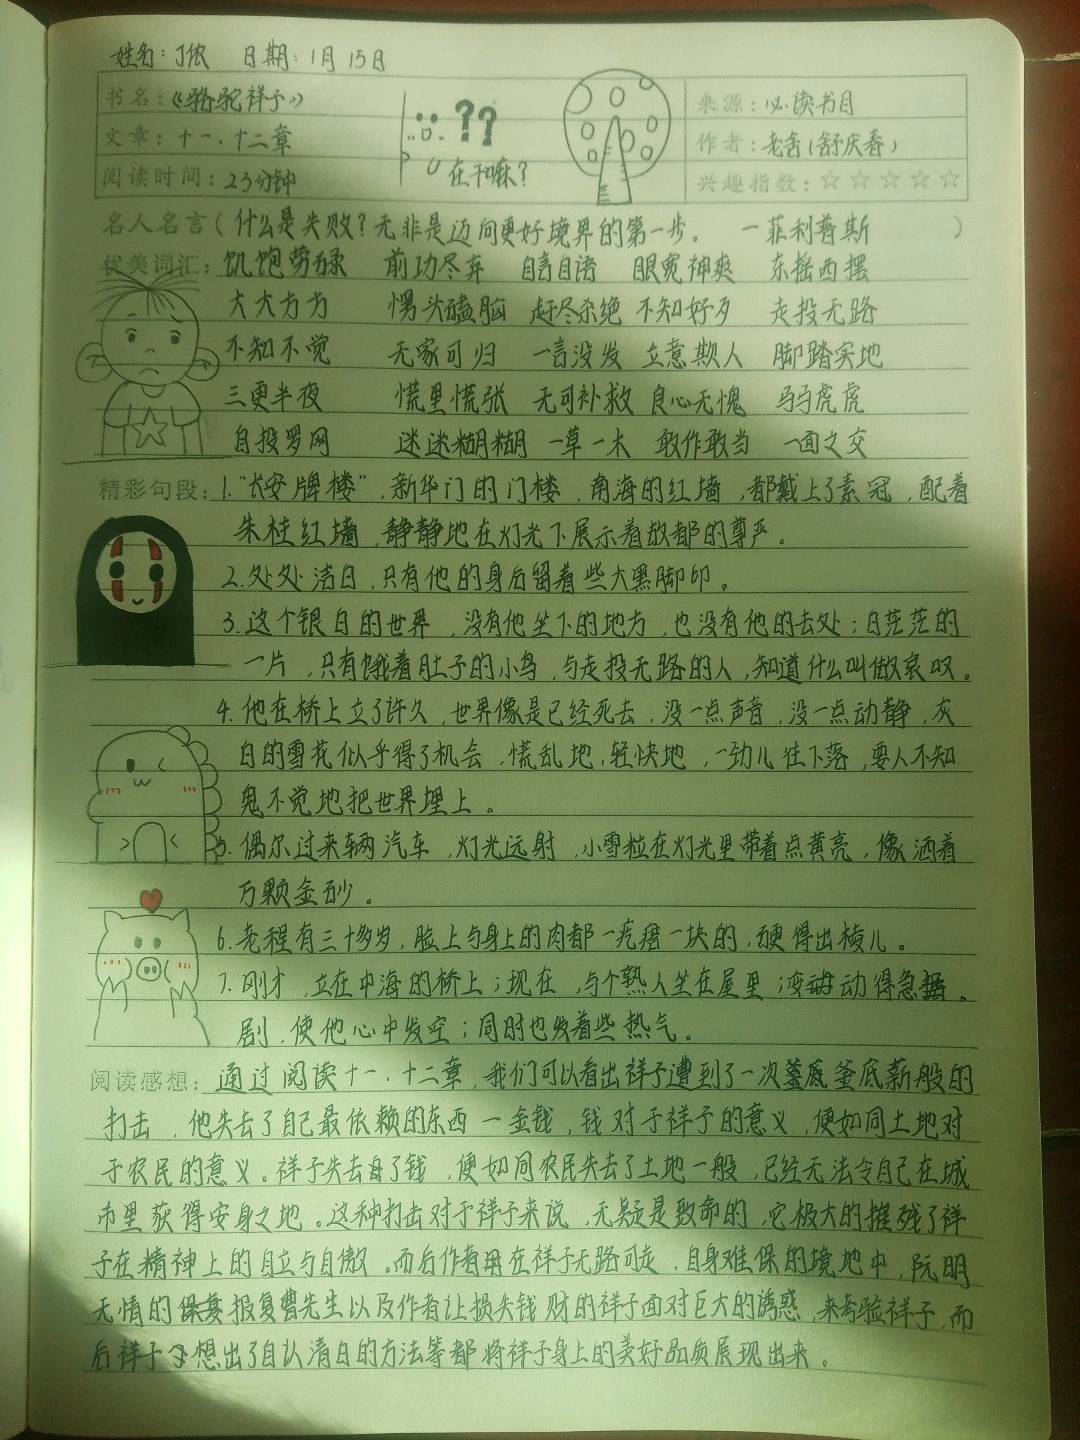 姓名:丁依 日期:1月15日
书名:《骆驼祥子》
文章:十一、十二章
阅读时间:23分钟
??
在干嘛?
来源:必读书目
作者:老舍(舒庆春)
兴趣指数:☆☆☆☆☆
名人名言(什么是失败?无非是迈向更好境界的第一步。 —菲利普斯 )
优美词汇:饥饱劳碌 前功尽弃 自言自语 眼宽神爽 东摇西摆
大大方方 愣头磕脑 赶尽杀绝 不知好歹 走投无路
不知不觉 无家可归 一言没发 立意欺人 脚踏实地
三更半夜 慌里慌张 无可补救 良心无愧 马马虎虎
自投罗网 迷迷糊糊 一草一木 敢作敢当 一面之交
精彩句段:1.“长安牌楼”,新华门的门楼,南海的红墙,都戴上了素冠,配着
朱柱红墙,静静地在灯光下展示着故都的尊严。
2.处处洁白,只有他的身后留着些大黑脚印。
3.这个银白的世界,没有他坐下的地方,也没有他的去处;白茫茫的
一片,只有饿着肚子的小鸟,与走投无路的人,知道什么叫做哀叹。
4.他在桥上立了许久,世界像是已经死去,没一点声音,没一点动静,灰
白的雪花似乎得了机会,慌乱地,轻快地,一劲儿往下落,要人不知
鬼不觉地把世界埋上。
5.偶尔过来辆汽车,灯光远射,小雪粒在灯光里带着点黄亮,像洒着
万颗金砂。
6.老程有三十多岁,脸上与身上的肉都一疙瘩一块的,硬得出棱儿。
7.刚才,立在中海的桥上;现在,与个熟人坐在屋里;变动得急
剧,使他心中发空;同时也发着些热气。
阅读感想:通过阅读十一、十二章,我们可以看出祥子遭到了一次釜底薪般的
打击,他失去了自己最依赖的东西—金钱,钱对于祥子的意义,便如同土地对
于农民的意义。祥子失去了钱,便如同农民失去了土地一般,已经无法令自己在城
市里获得安身之地。这种打击对于祥子来说,无疑是致命的,它极大的摧残了祥
子在精神上的自立与自傲。而后作者用在祥子无路可走,自身难保的境地中,阮明
无情的报复曹先生以及作者让损失钱财的祥子面对巨大的诱惑,来考验祥子,而
后祥子想出了自认清白的方法等都将祥子身上的美好品质展现出来。